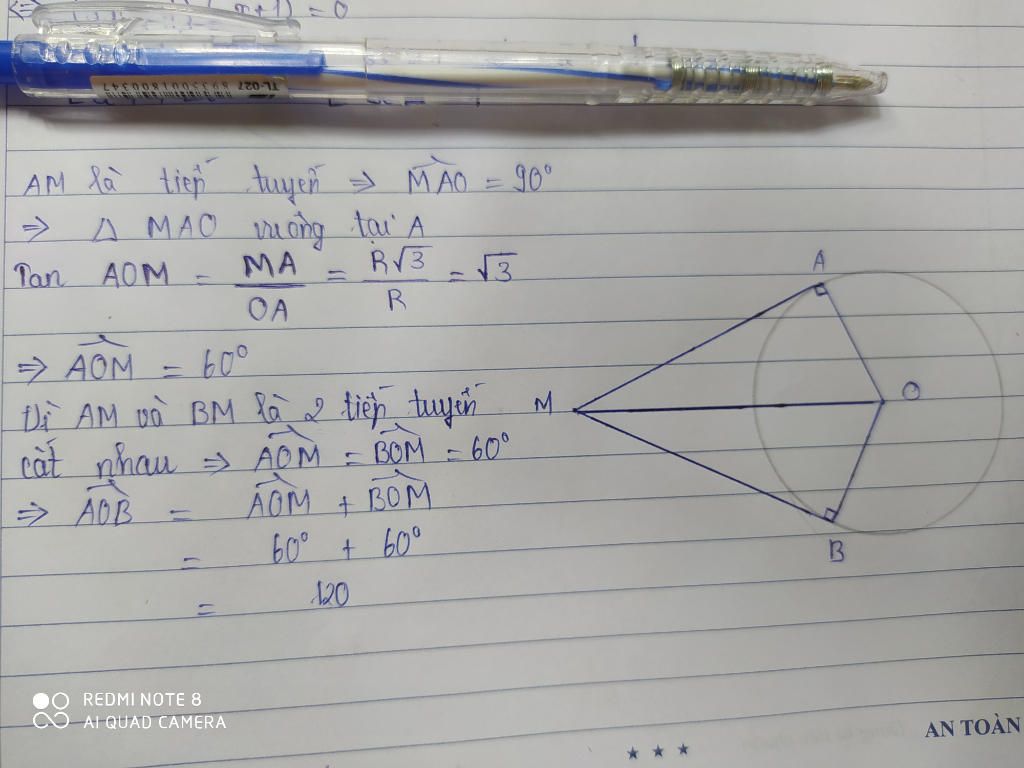 (x+1) = 0
TL-027
AM là tiếp tuyến ⇒ MAO = 90°
⇒ Δ MAO vuông tại A
Tan AOM = MA/OA = R√3/R = √3
⇒ AOM = 60°
Vì AM và BM là 2 tiếp tuyến
cắt nhau ⇒ AOM = BOM = 60°
⇒ AOB = AOM + BOM
= 60° + 60°
= 120
A
M
O
B
REDMI NOTE 8
AI QUAD CAMERA
AN TOÀN